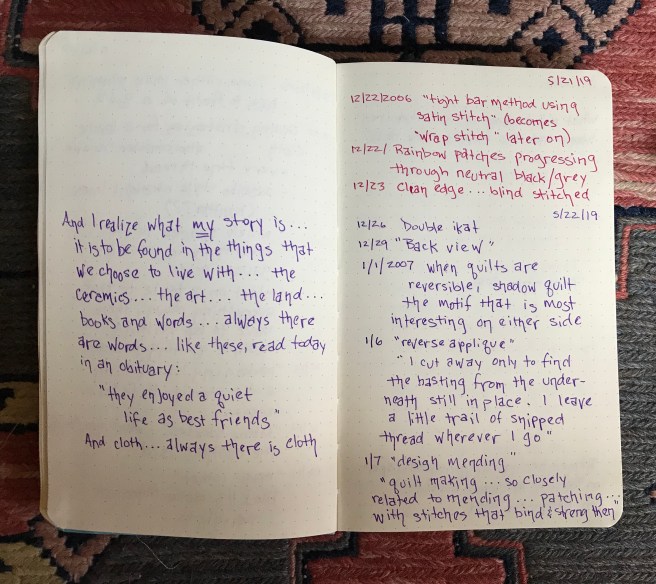 And I realize what my story is...
it is to be found in the things that
we choose to live with... the
ceramics... the art... the land...
books and words... always there
are words... like these, read today
in an obituary:
"they enjoyed a quiet
life as best friends"
And cloth... always there is cloth
5/21/19
12/22/2006 "tight bar method using
satin stitch" (becomes
"wrap stitch" later on)
12/22/ Rainbow patches progressing
through neutral black/grey
12/23 Clean edge... blind stitched
5/22/19
12/26 Double ikat
12/29 "Back view"
1/1/2007 when quilts are
reversible, shadow quilt
the motif that is most
interesting on either side
1/6 "reverse applique"
"I cut away only to find
the basting from the under-
neath still in place. I leave
a little trail of snipped
thread wherever I go"
1/7 "design mending"
"quilt making... so closely
related to mending... patching...
with stitches that bind & strengthen"